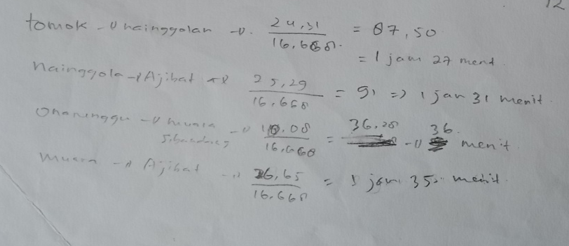 12
tomok - Nainggolan - 24,31 / 16.668 = 87,50
= 1 jam 27 menit
Nainggola - Ajibat 25,29 / 16.668 = 91 => 1 jam 31 menit
Onanrunggu - muara 10.08 / 16.668 = 36,28 - 36 menit
Sibandang
muara - Ajibat 26,65 / 16.668 = 1 jam 35 menit